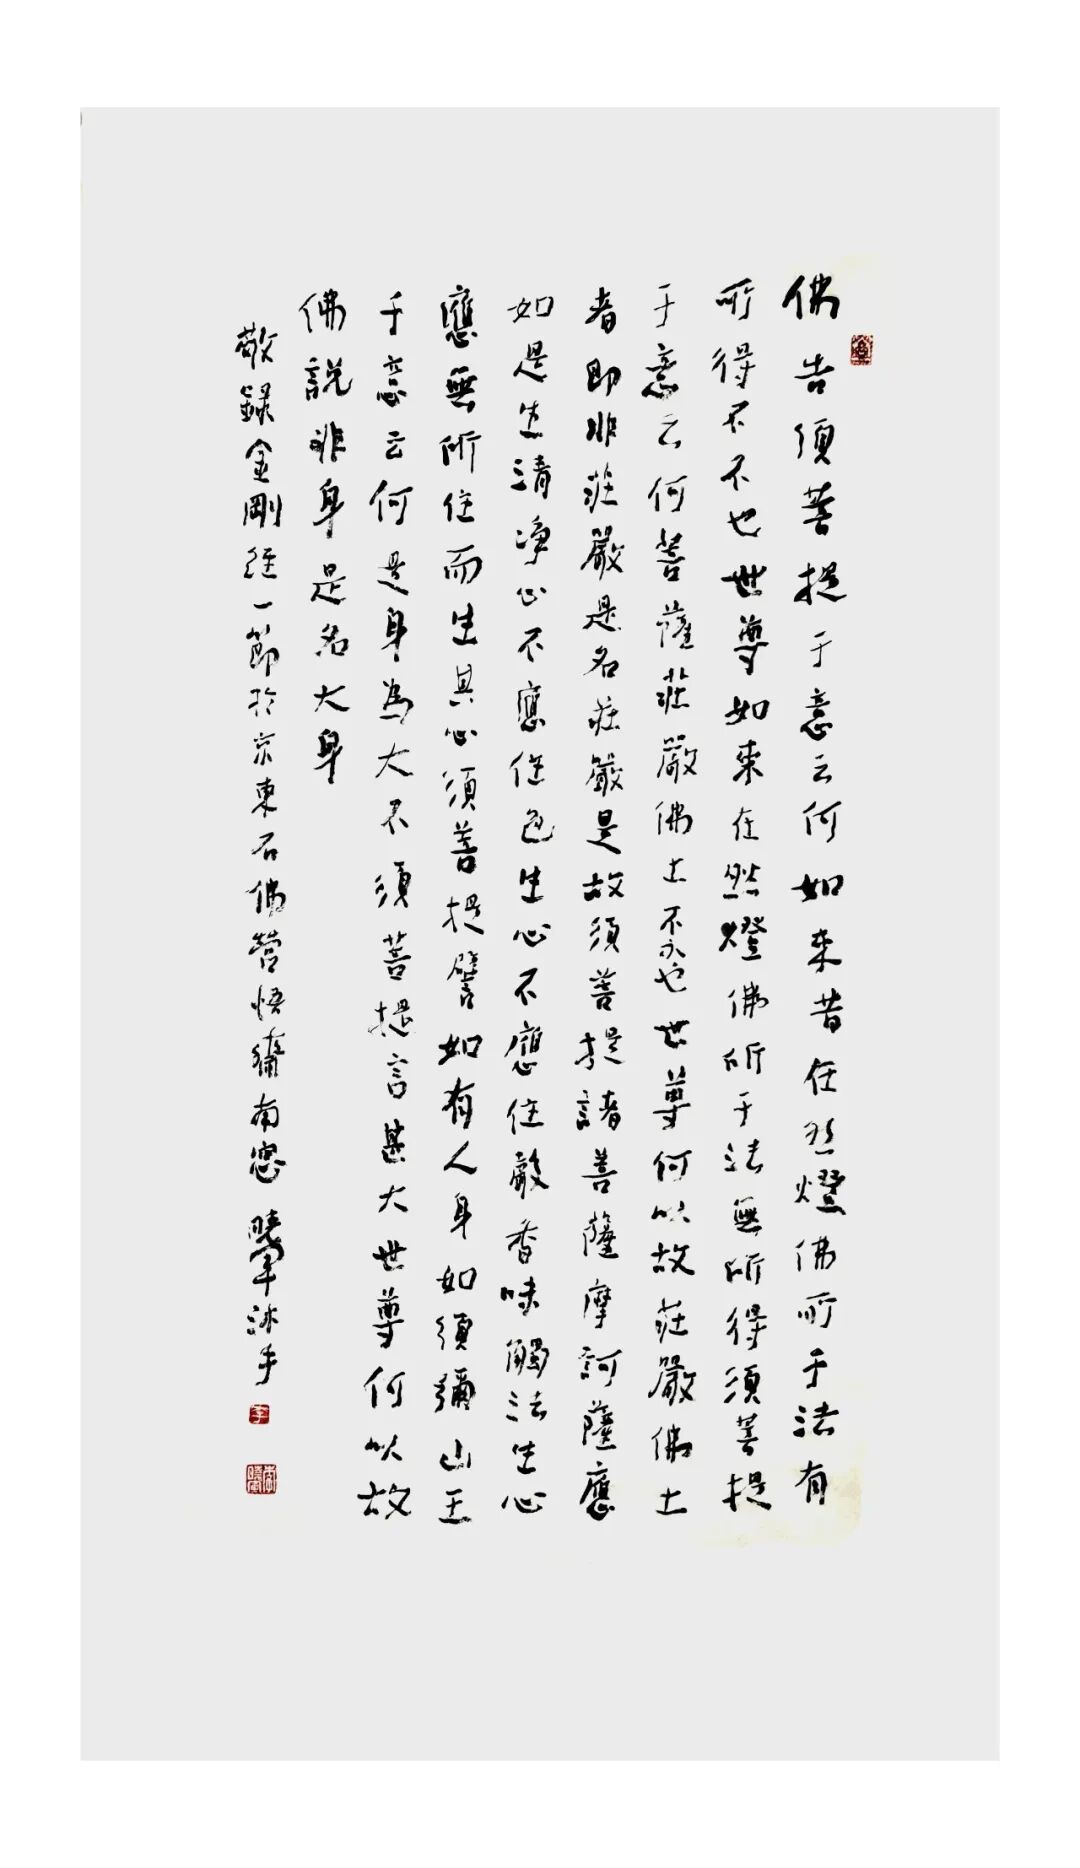 佛告須菩提于意云何如来昔在然燈佛所于法有
所得不不也世尊如来在然燈佛所于法無所得須菩提
于意云何菩薩莊嚴佛土不不也世尊何以故莊嚴佛土
者即非莊嚴是名莊嚴是故須菩提諸菩薩摩訶薩應
如是生清净心不應住色生心不應住聲香味觸法生心
應無所住而生其心須菩提譬如有人身如須彌山王
于意云何是身為大不須菩提言甚大世尊何以故
佛說非身是名大身
敬録金剛經一節於京東石佛營悟 南窗曉軍沐手
李